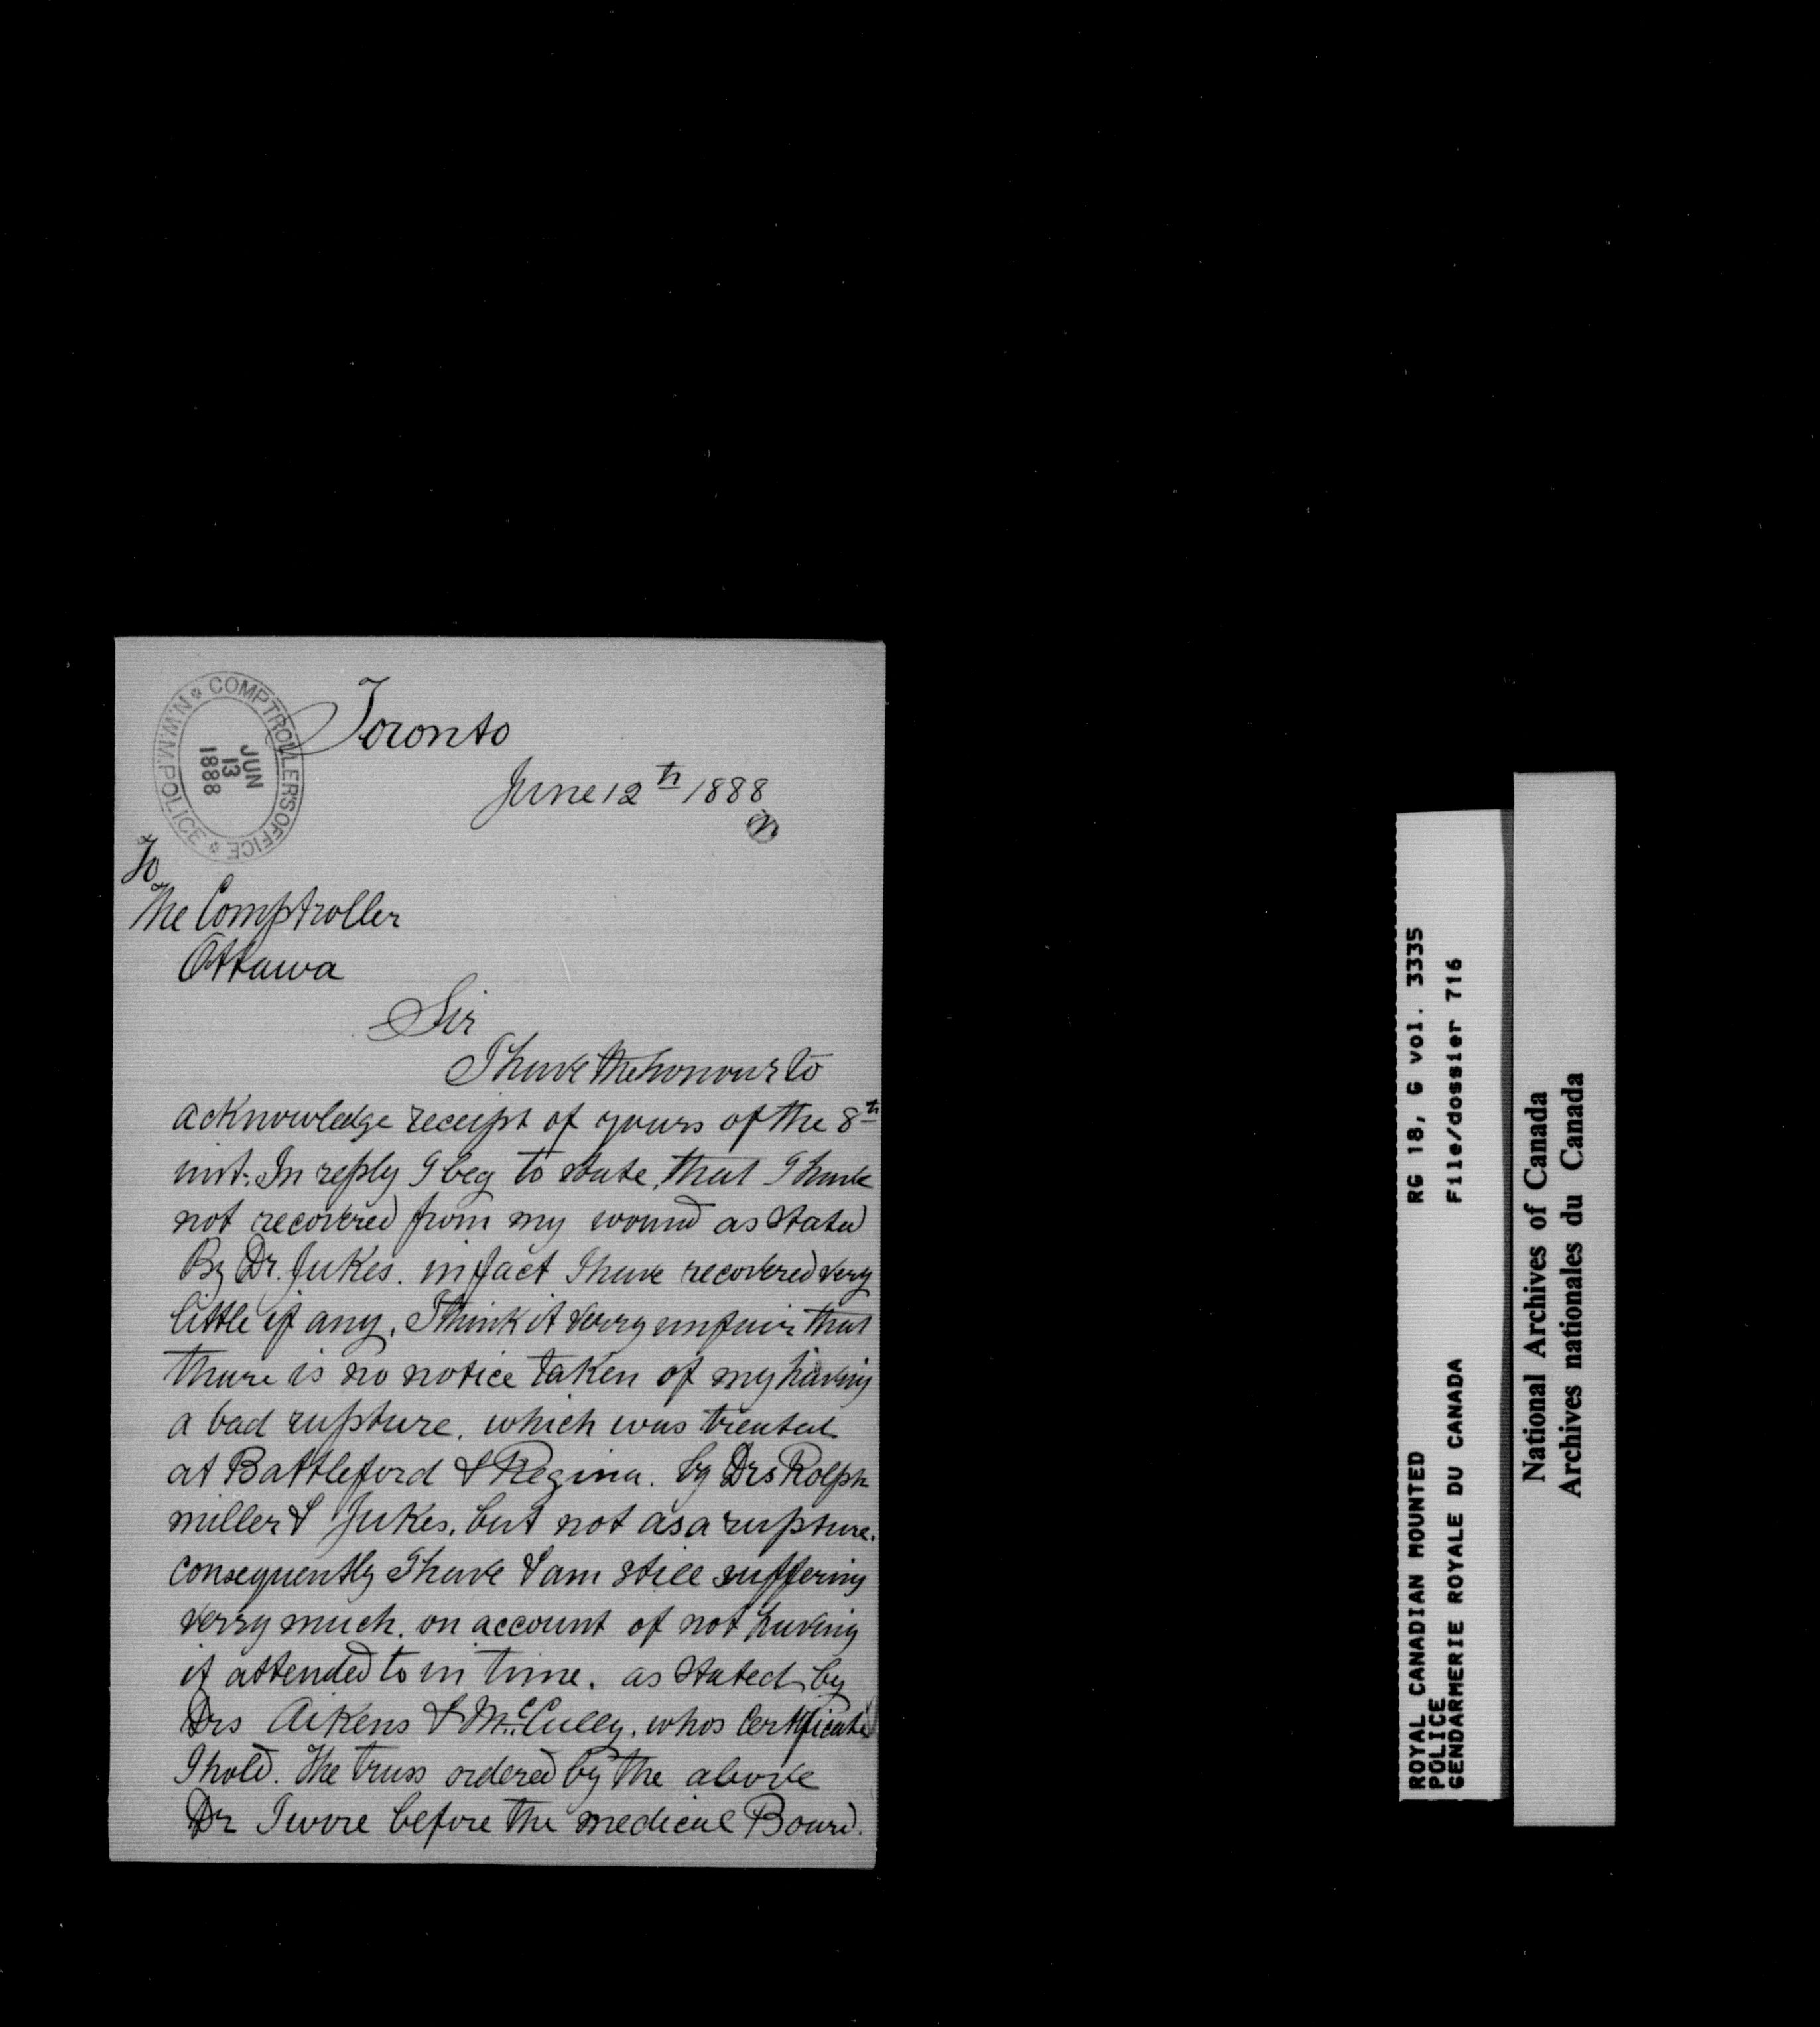 COMPTROLLERS OFFICE
N.W.M. POLICE
JUN
13
1888
Toronto
June 12th 1888
To
The Comptroller
Ottawa
Sir
I have the honour to
acknowledge receipt of yours of the 8th
inst. In reply I beg to state, that I have
not recovered from my wound as stated
By Dr. Jukes. in fact I have recovered very
little if any. I think it verry unfair that
there is no notice taken of my having
a bad rupture. which was treated
at Battleford & Regina. by Drs Rolph
miller & Jukes. but not as a rupture.
consequently I have & am still suffering
verry much. on account of not having
it attended to in time. as stated by
Drs Aikens & McCully. whos Certificate
I hold. The truss ordered by the above
Dr I wore before the medical Board.
ROYAL CANADIAN MOUNTED RG 18, G vol. 3335
POLICE
GENDARMERIE ROYALE DU CANADA File/dossier 716
National Archives of Canada
Archives nationales du Canada